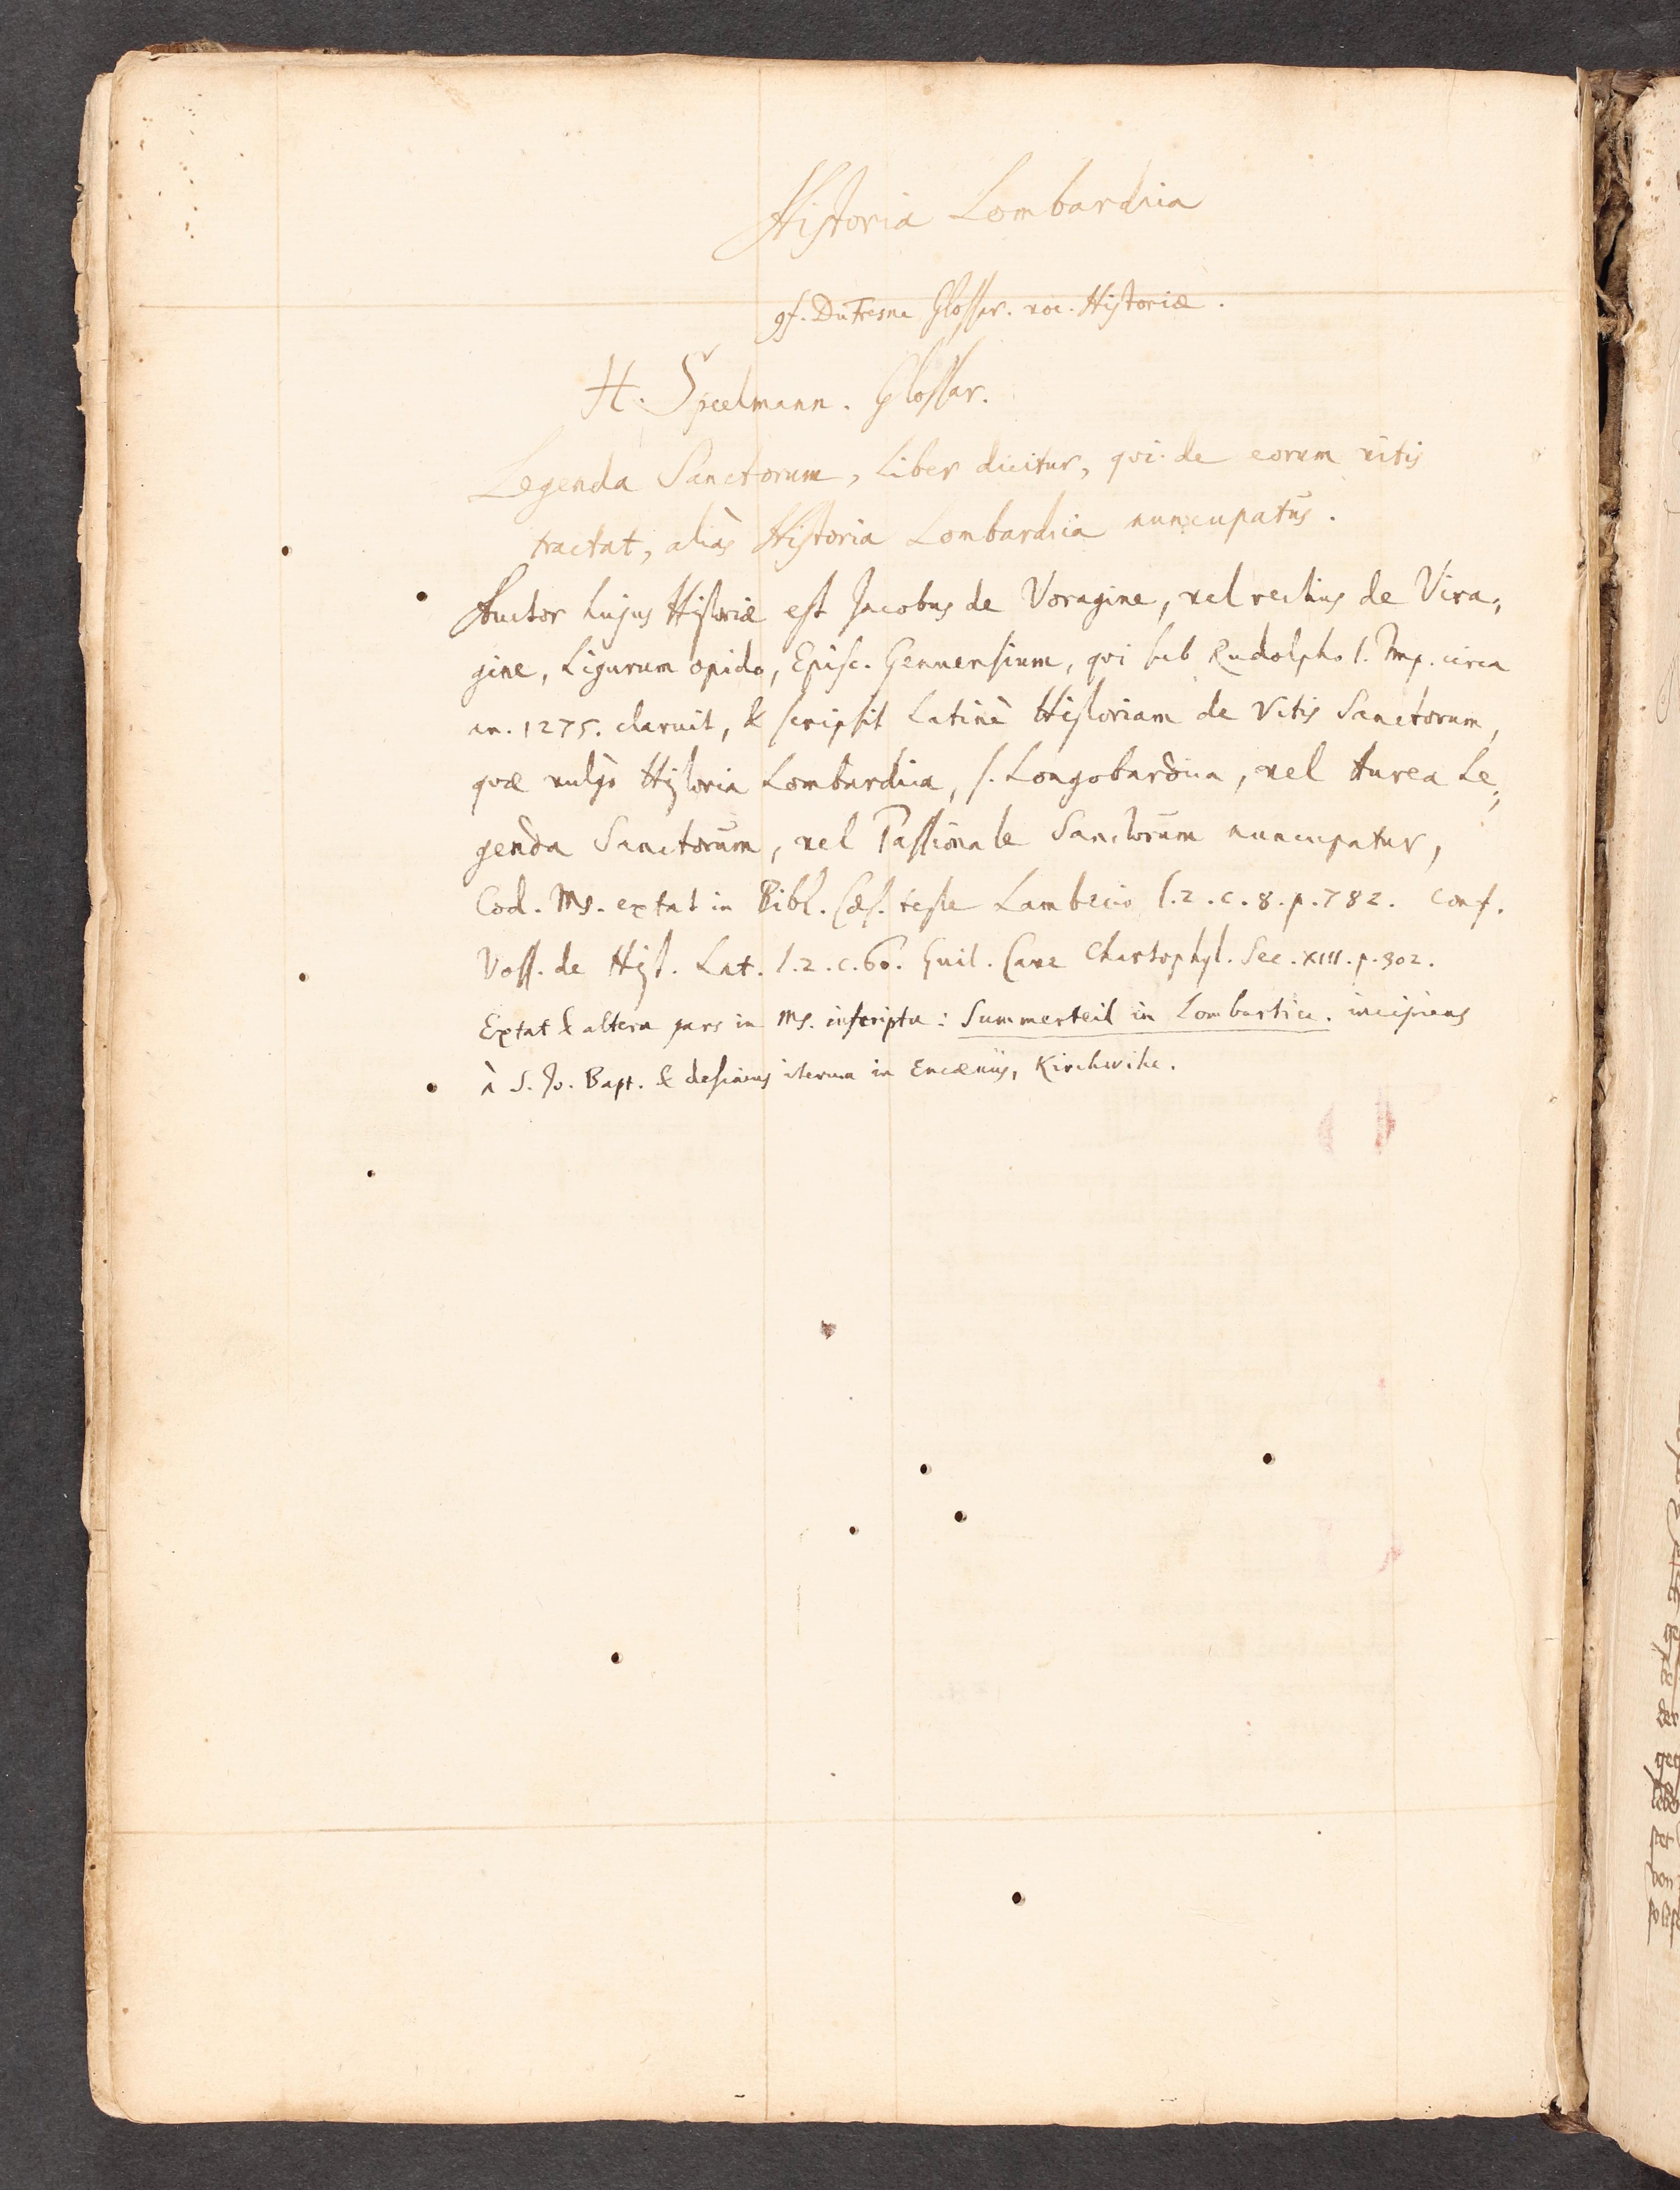 Historia Lombardica
cf. DuFresne Glossar. voc. Historiæ.
H. Speelmann. Glossar.
Legenda Sanctorum, Liber dicitur, qvi de eorum vitis
tractat, aliàs Historia Lombardica nuncupatus.
Auctor hujus Historiæ est Jacobus de Voragine, vel rectius de Vira-
gine, Ligurum opido, Episc. Genuensium, qvi sub Rudolpho I. Imp. circa
an. 1275. claruit, & scripsit Latinè Historiam de Vitis Sanctorum,
qvæ vulgò Historia Lombardica, s. Longobardica, vel Aurea Le-
genda Sanctorum, vel Passionale Sanctorum nuncupatur,
Cod. Ms. extat in Bibl. Cæs. teste Lambecio l.2.c.8.p.782. conf.
Voss. de Hist. Lat. l.2.c.60. Guil. Cave Chartophyl. Sec. XIII. p.302.
Extat & altera pars in Ms. inscripta: Summerteil in Lombartica. incipiens
à S. Jo. Bapt. & desinens iterum in Encæniis, Kirchwihe.